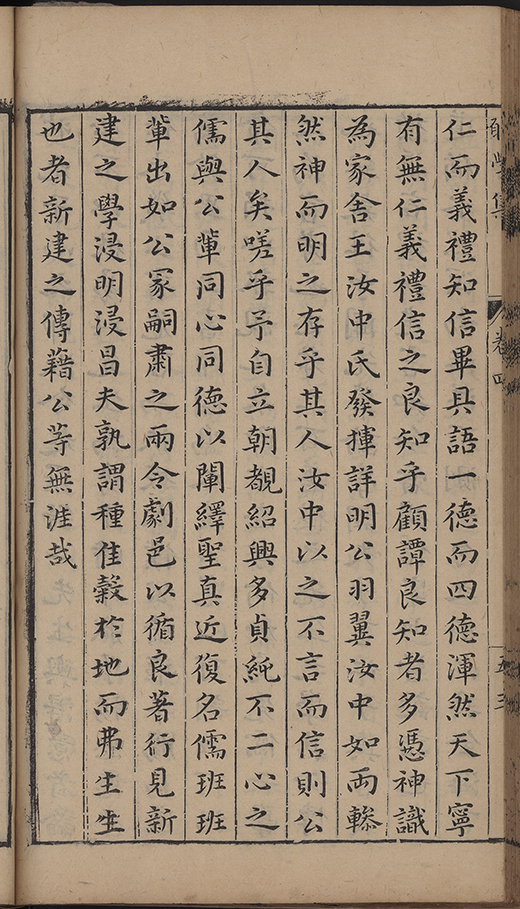 學集
卷四
五三
仁而義禮知信畢具語一德而四德渾然天下寧
有無仁義禮信之良知乎顧譚良知者多憑神識
為家舍王汝中氏發揮詳明公羽翼汝中如兩驂
然神而明之存乎其人汝中以之不言而信則公
其人矣嗟乎予自立朝覩紹興多貞純不二心之
儒與公輩同心同德以闡繹聖真近復名儒班班
輩出如公冢嗣肅之兩令劇邑以循良著行見新
建之學浸明浸昌夫孰謂種佳穀於地而弗生生
也者新建之傳藉公等無涯哉